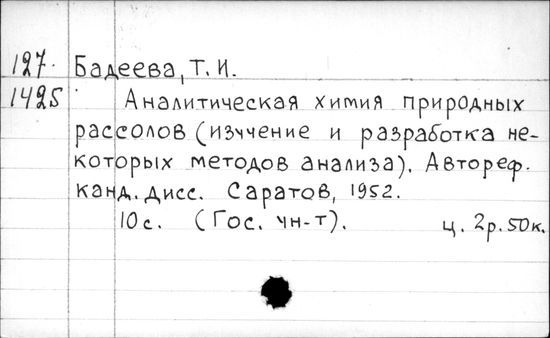 127. Бадеева, Т. И.
1425 Аналитическая химия природных
рассолов (изучение и разработка не-
которых методов анализа). Автореф.
канд. дисс. Саратов, 1952.
10 с. (Гос. ун-т). ц. 2р. 50к.